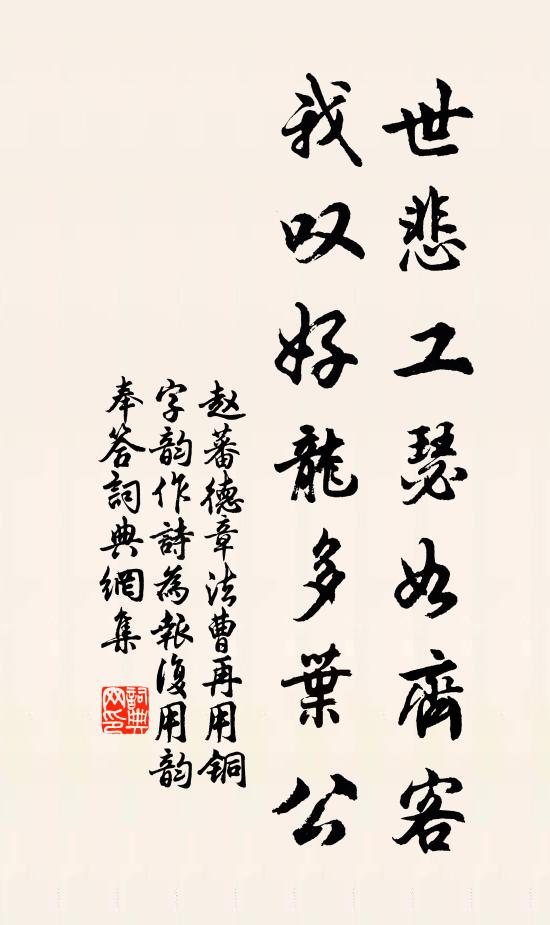 世悲工瑟如齊客
我叹好龍多葉公
赵蕃德章法曹再用銅
字韵作詩為報復用韵
奉答詞典網集
詞典網印